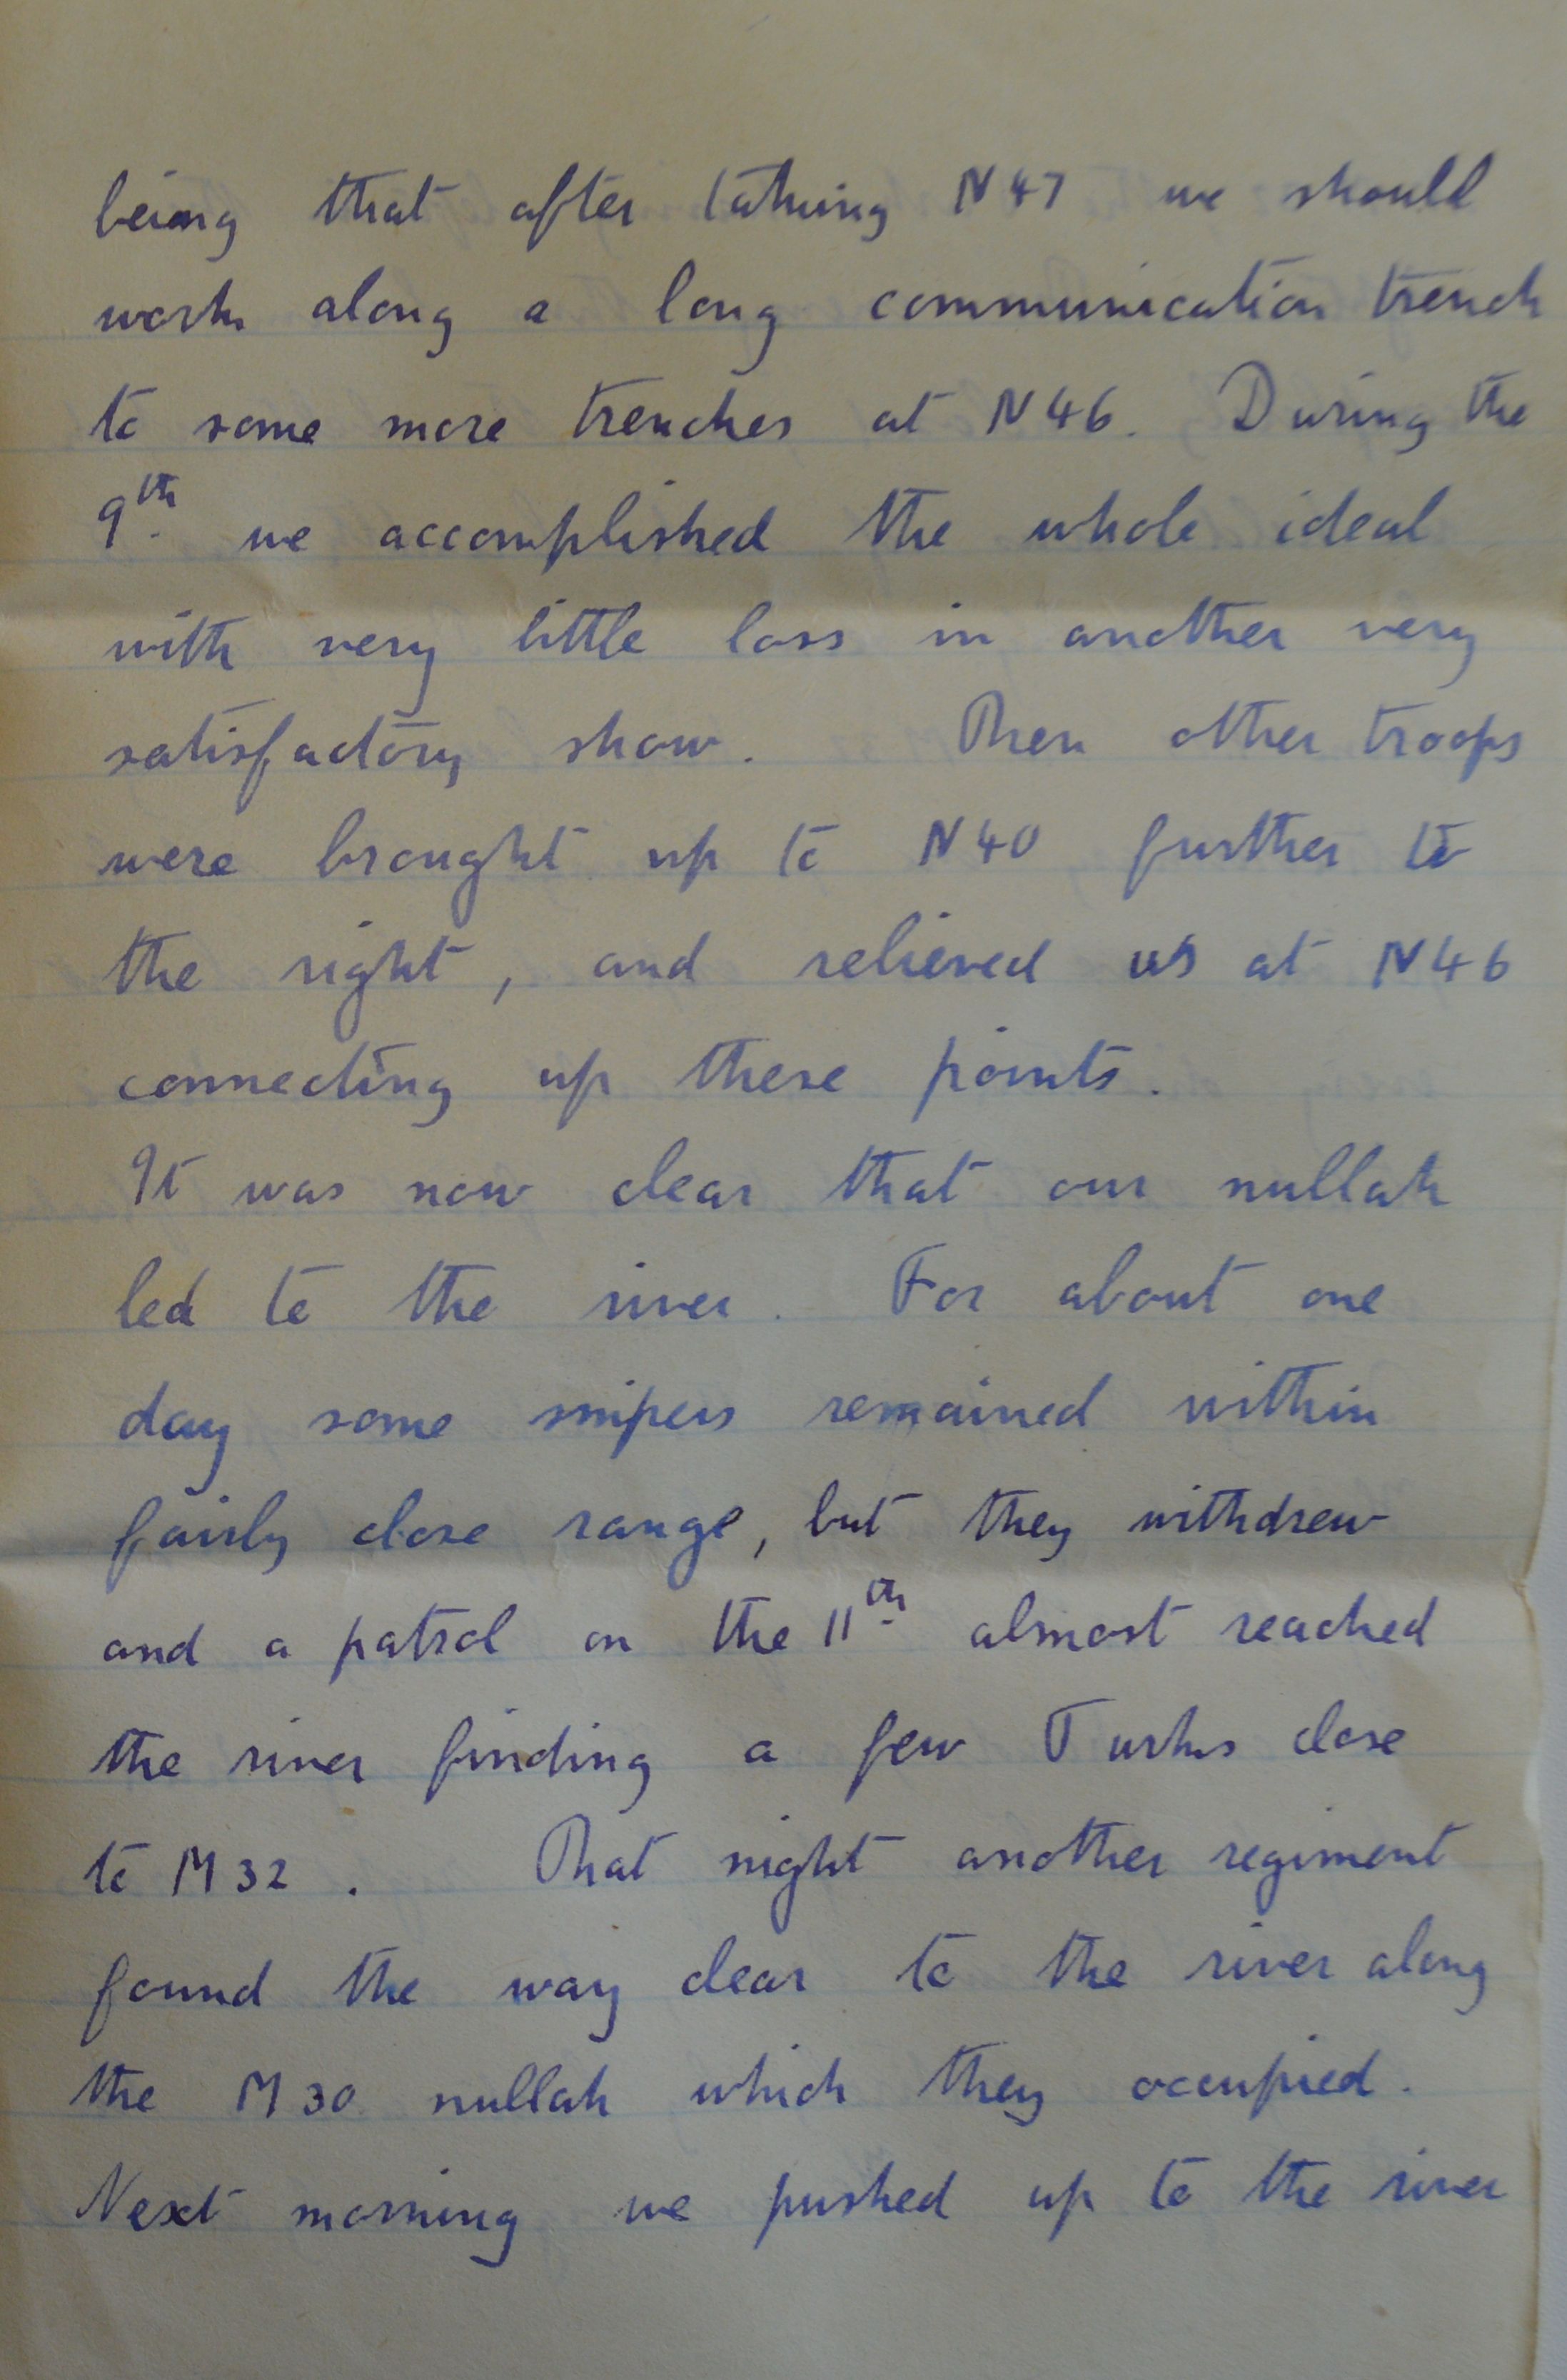 being that after taking N47 we should
work along a long communication trench
to some more trenches at N46. During the
9th we accomplished the whole ideal
with very little loss in another very
satisfactory show. Then other troops
were brought up to N40 further to
the right, and relieved us at N46
connecting up these points.
It was now clear that our nullah
led to the river. For about one
day some snipers remained within
fairly close range, but they withdrew
and a patrol on the 11th almost reached
the river finding a few Turks close
to M32. That night another regiment
found the way clear to the river along
the M30 nullah which they occupied.
Next morning we pushed up to the river